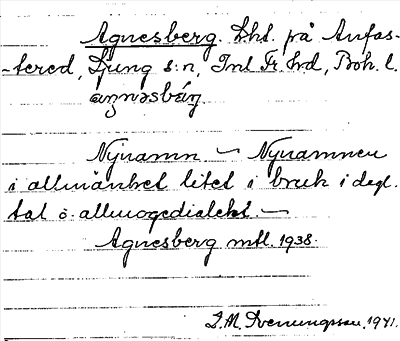 Agnesberg. Lht. på Anfas-
-tered, Ljung s:n, Inl Fr. hd, Boh. l.
aŋnəsbærj.
Nynamn – Nynamnen
i allmänhet litet i bruk i degl.
tal o. allmogedialekt. –
Agnesberg mtl. 1938.
I. M. Svenungsson. 1941.